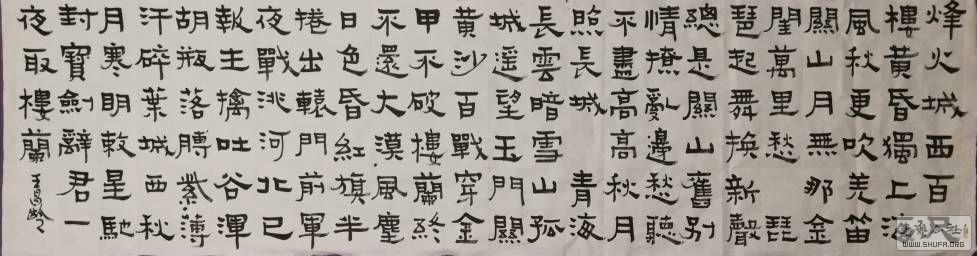 烽火城西百尺
樓黄昏獨上海
風秋更吹羌笛
關山月無那金
閨萬里愁 琵
琶起舞換新聲
總是關山舊別
情撩亂邊愁聽
不盡高高秋月
照長城 青海
長雲暗雪山孤
城遥望玉門關
黄沙百戰穿金
甲不破樓蘭終
不還大漠風塵
日色昏紅旗半
捲出轅門前軍
夜戰洮河北已
報生擒吐谷渾
胡瓶落膊紫薄
汗碎葉城西秋
月寒明敕星馳
封寶劍辭君一
夜取樓蘭 王昌齡
WWW.SHUFA.ORG